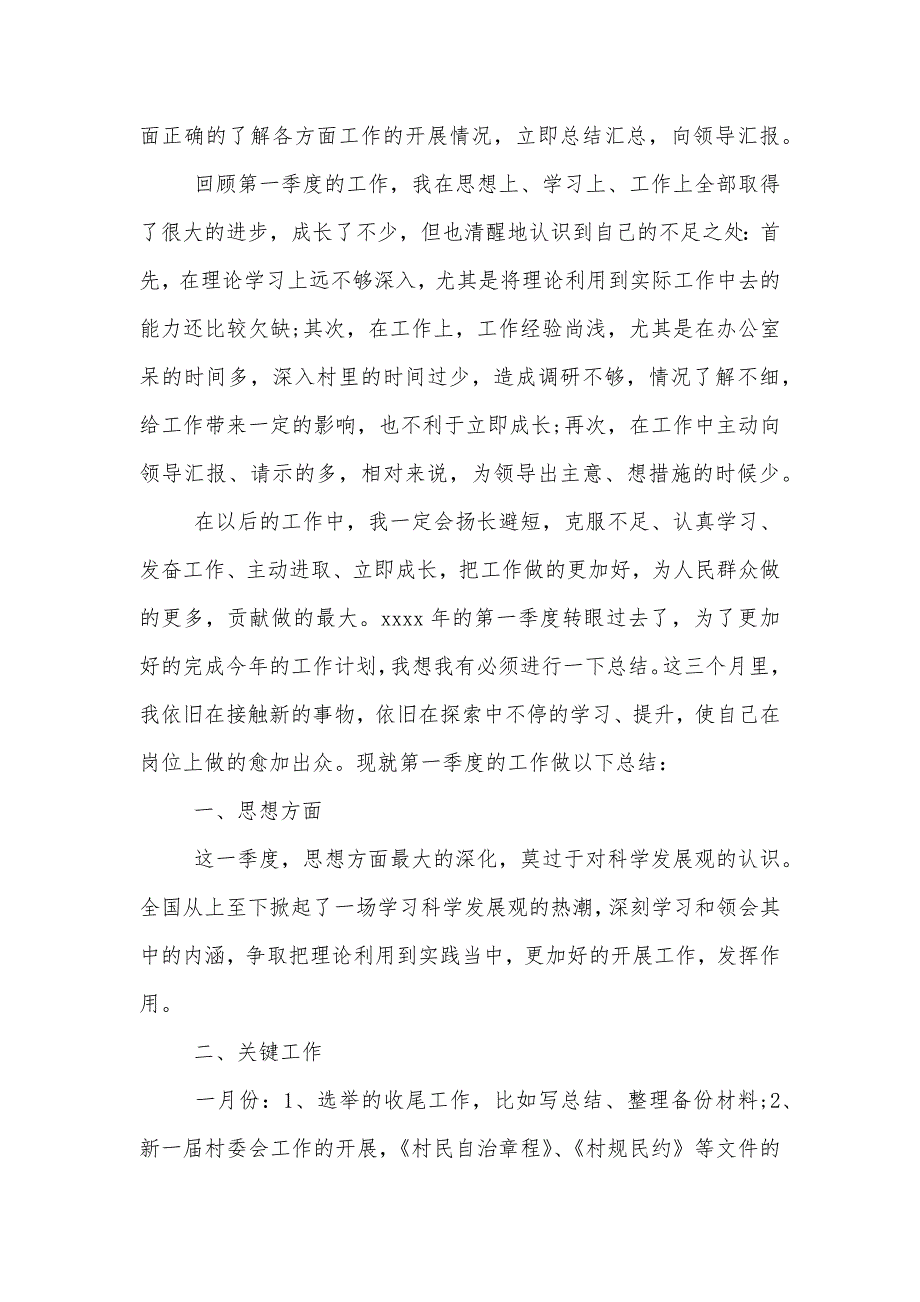 面正确的了解各方面工作的开展情况，立即总结汇总，向领导汇报。
回顾第一季度的工作，我在思想上、学习上、工作上全部取得
了很大的进步，成长了不少，但也清醒地认识到自己的不足之处：首
先，在理论学习上远不够深入，尤其是将理论利用到实际工作中去的
能力还比较欠缺;其次，在工作上，工作经验尚浅，尤其是在办公室
呆的时间多，深入村里的时间过少，造成调研不够，情况了解不细，
给工作带来一定的影响，也不利于立即成长;再次，在工作中主动向
领导汇报、请示的多，相对来说，为领导出主意、想措施的时候少。
在以后的工作中，我一定会扬长避短，克服不足、认真学习、
发奋工作、主动进取、立即成长，把工作做的更加好，为人民群众做
的更多，贡献做的最大。xxxx 年的第一季度转眼过去了，为了更加
好的完成今年的工作计划，我想我有必须进行一下总结。这三个月里，
我依旧在接触新的事物，依旧在探索中不停的学习、提升，使自己在
岗位上做的愈加出众。现就第一季度的工作做以下总结：
一、思想方面
这一季度，思想方面最大的深化，莫过于对科学发展观的认识。
全国从上至下掀起了一场学习科学发展观的热潮，深刻学习和领会其
中的内涵，争取把理论利用到实践当中，更加好的开展工作，发挥作
用。
二、关键工作
一月份：1、选举的收尾工作，比如写总结、整理备份材料;2、
新一届村委会工作的开展，《村民自治章程》、《村规民约》等文件的